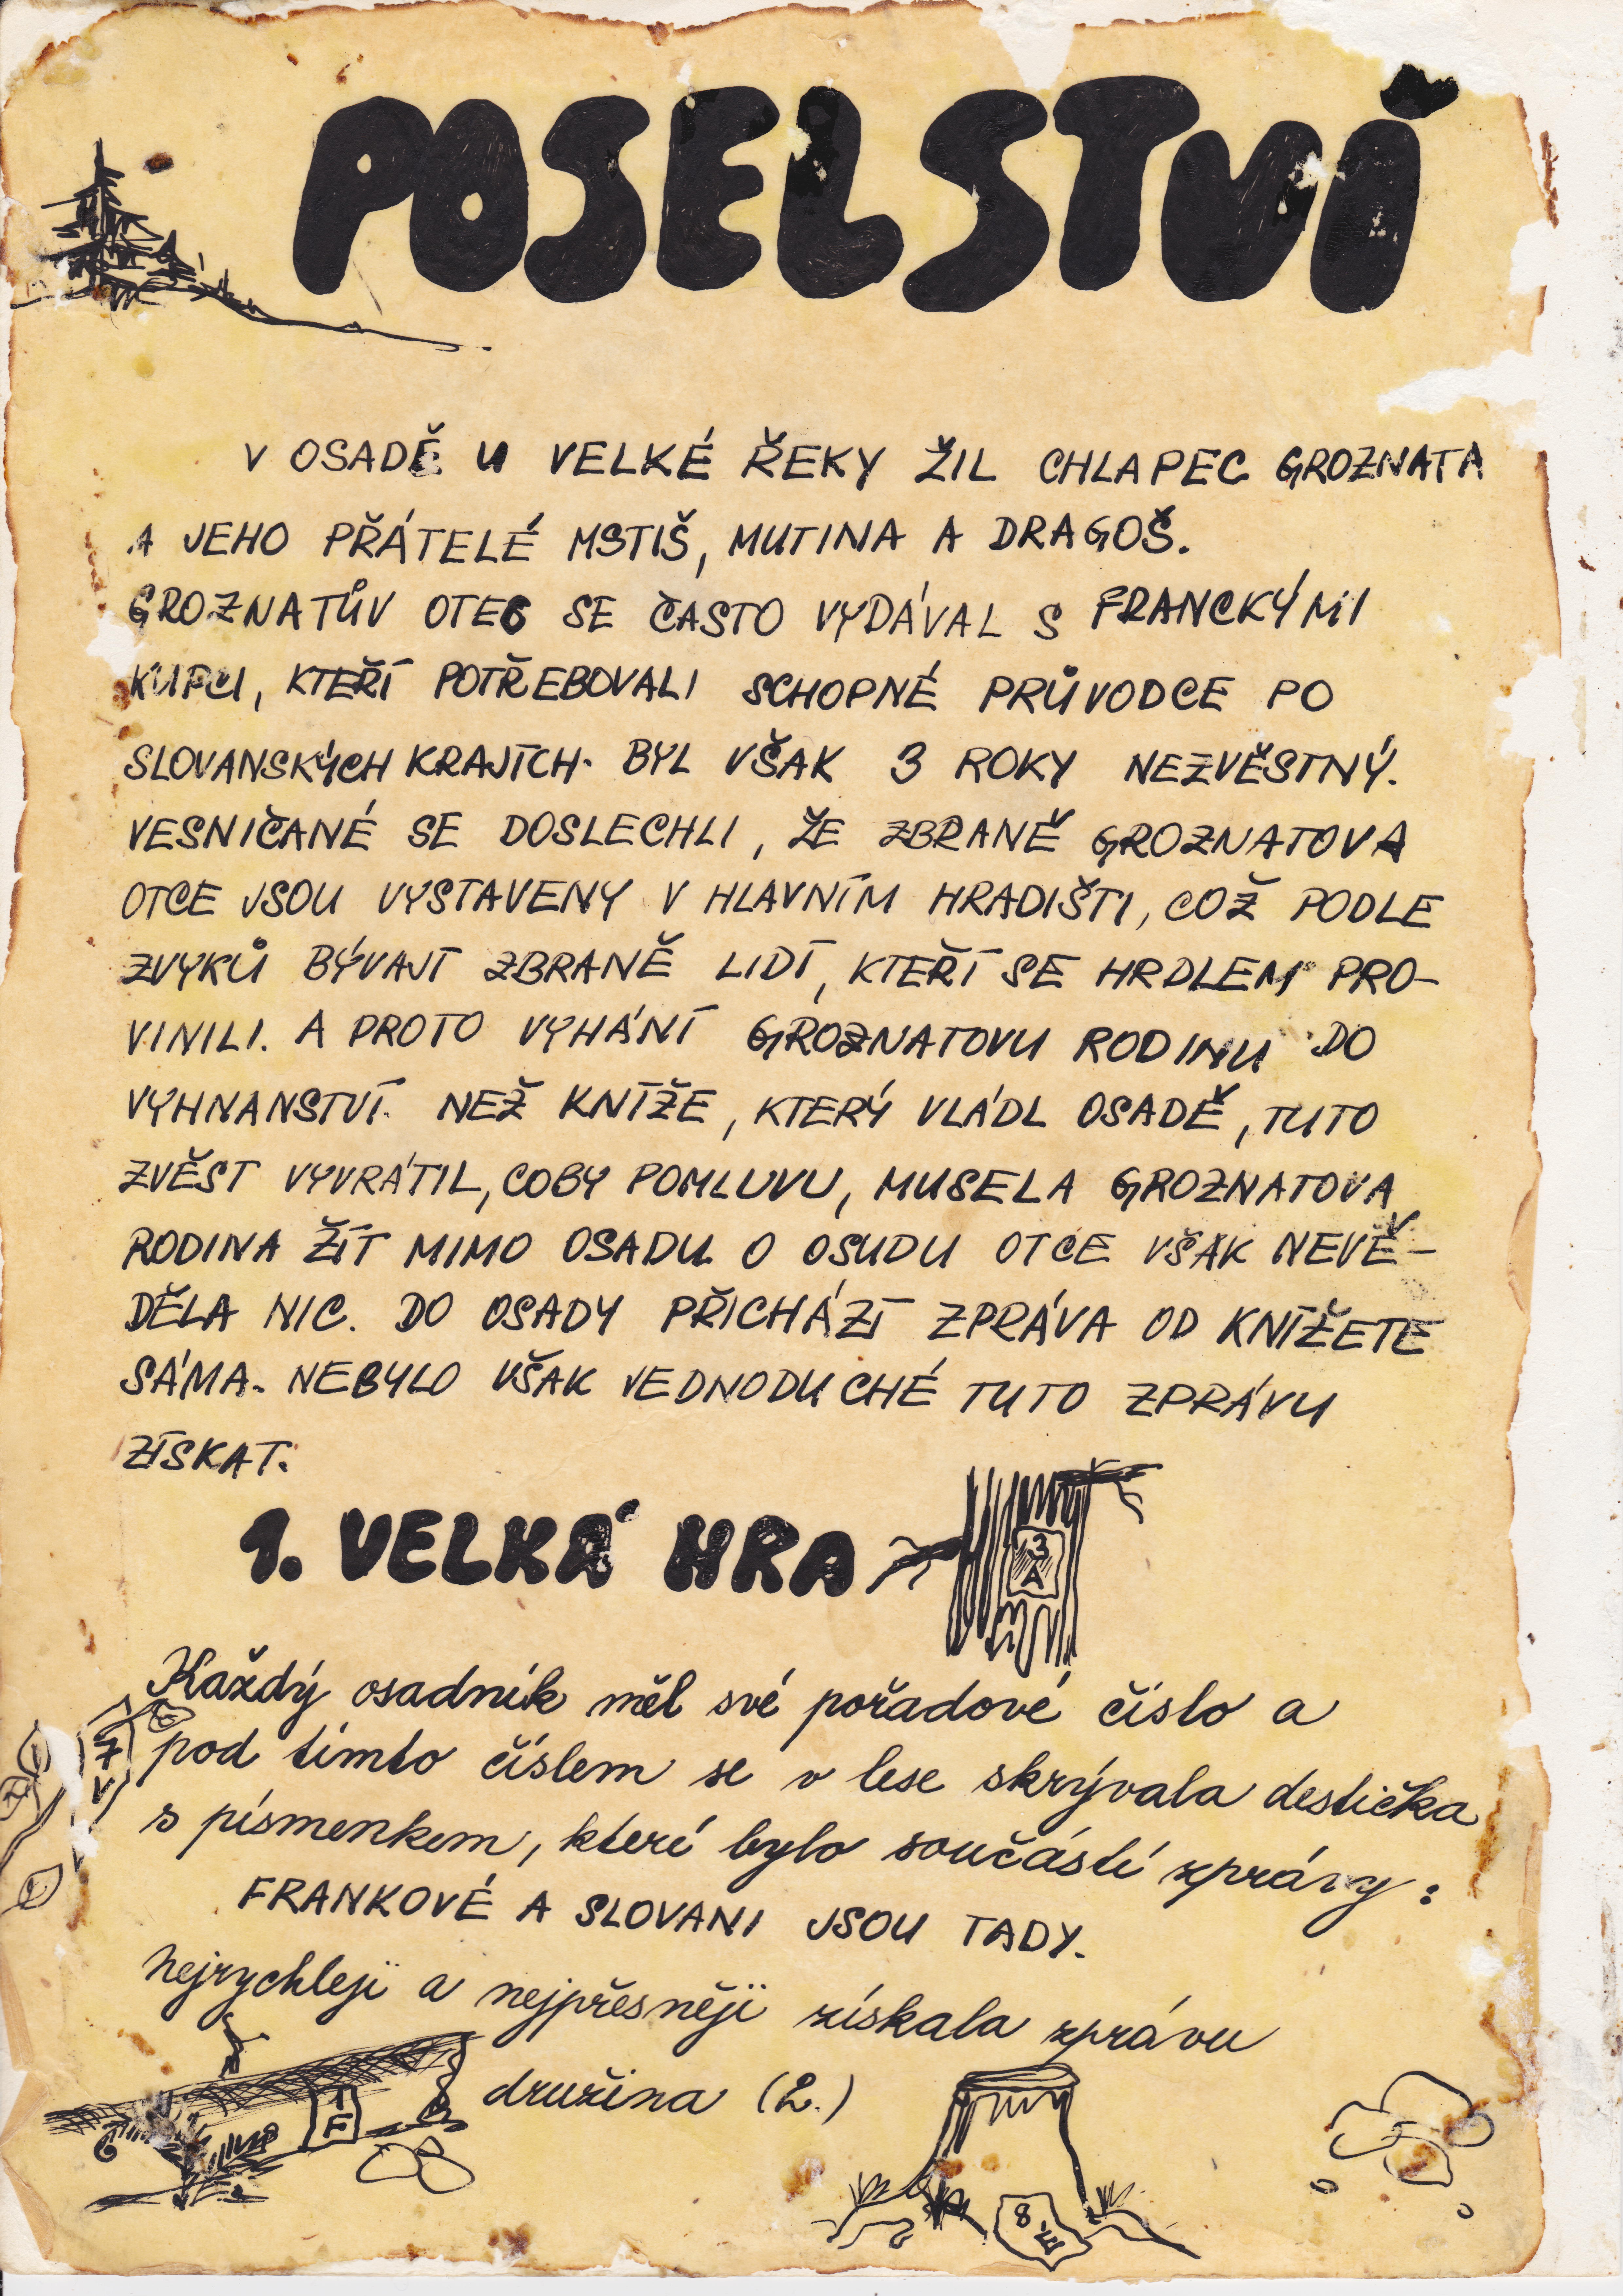 POSELSTVÍ
V OSADĚ U VELKÉ ŘEKY ŽIL CHLAPEC GROZNATA
A JEHO PŘÁTELÉ MSTIŠ, MUTINA A DRAGOŠ.
GROZNATŮV OTEC SE ČASTO VYDÁVAL S FRANCKÝMI
KUPCI, KTEŘÍ POTŘEBOVALI SCHOPNÉ PRŮVODCE PO
SLOVANSKÝCH KRAJÍCH. BYL VŠAK 3 ROKY NEZVĚSTNÝ.
VESNIČANÉ SE DOSLECHLI, ŽE ZBRANĚ GROZNATOVA
OTCE JSOU VYSTAVENY V HLAVNÍM HRADIŠTI, COŽ PODLE
ZVYKŮ BÝVAJÍ ZBRANĚ LIDÍ, KTEŘÍ SE HRDLEM PRO-
VINILI. A PROTO VYHÁNÍ GROZNATOVU RODINU DO
VYHNANSTVÍ. NEŽ KNÍŽE, KTERÝ VLÁDL OSADĚ, TUTO
ZVĚST VYVRÁTIL, COBY POMLUVU, MUSELA GROZNATOVA
RODINA ŽÍT MIMO OSADU O OSUDU OTCE VŠAK NEVĚ-
DĚLA NIC. DO OSADY PŘICHÁZÍ ZPRÁVA OD KNÍŽETE
SÁMA. NEBYLO VŠAK JEDNODUCHÉ TUTO ZPRÁVU
ZÍSKAT.
1. VELKÁ HRA
3
A
Každý osadník měl své pořadové číslo a
pod tímto číslem se v lese skrývala destička
s písmenkem, které bylo součástí zprávy:
7
V
FRANKOVÉ A SLOVANI JSOU TADY.
nejrychleji a nejpřesněji získala zprávu
družina (2.)
1
F
8
É